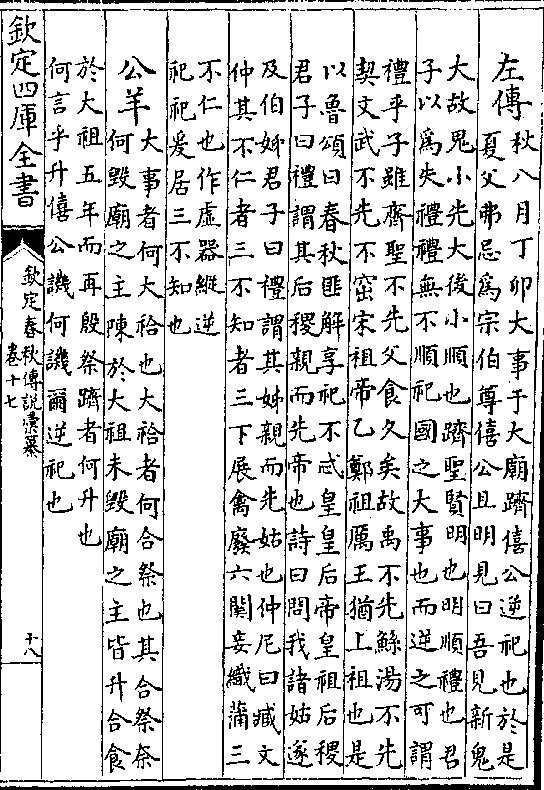 左傳
秋八月丁卯大事于大廟躋僖公逆祀也於是
夏父弗忌爲宗伯尊僖公且明見曰吾見新鬼
大故鬼小先大後小順也躋聖賢明也明順禮也君
子以爲失禮禮無不順祀國之大事也而逆之可謂
禮乎子雖齊聖不先父食久矣故禹不先鯀湯不先
契文武不先不窋宋祖帝乙鄭祖厲王猶上祖也是
以魯頌曰春秋匪解享祀不忒皇皇后帝皇祖后稷
君子曰禮謂其后稷親而先帝也詩曰問我諸姑遂
及伯姊君子曰禮謂其姊親而先姑也仲尼曰臧文
仲其不仁者三不知者三下展禽廢六關妾織蒲三
不仁也作虛器縱逆
祀祀爰居三不知也
公羊
大事者何大祫也大祫者何合祭也其合祭奈
何毀廟之主陳於大祖未毀廟之主皆升合食
於大祖五年而再殷祭躋者何升也
何言乎升僖公譏何譏爾逆祀也
欽定四庫全書
欽定春秋傳說彙纂
卷十七
十八